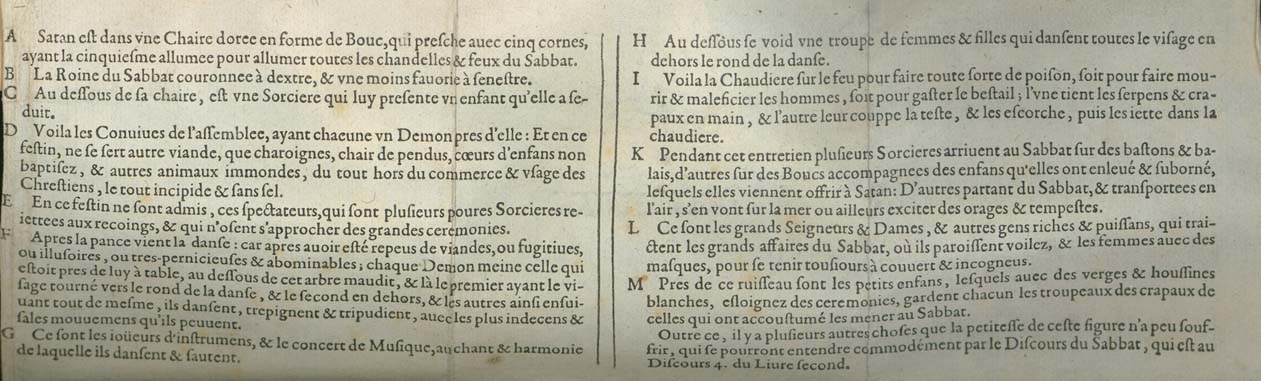 A Satan eſt dans vne Chaire doree en forme de Bouc, qui preſche auec cinq cornes,
ayant la cinquieſme allumee pour allumer toutes les chandelles & feux du Sabbat.
B La Roine du Sabbat couronnee à dextre, & vne moins fauorie à ſeneſtre.
C Au deſſous de ſa chaire, eſt vne Sorciere qui luy preſente vn enfant qu'elle a ſe-
duit.
D Voila les Conuiues de l'aſſemblee, ayant chacune vn Demon pres d'elle: Et en ce
feſtin, ne ſe ſert autre viande, que charoignes, chair de pendus, cœurs d'enfans non
baptiſez, & autres animaux immondes, du tout hors du commerce & vſage des
Chreſtiens, le tout incipide & ſans ſel.
E En ce feſtin ne ſont admis, ces ſpectateurs, qui ſont pluſieurs poures Sorcieres re-
iettees aux recoings, & qui n'oſent s'approcher des grandes ceremonies.
F Apres la pance vient la danſe: car apres auoir eſté repeus de viandes, ou fugitiues,
ou illuſoires, ou tres-pernicieuſes & abominables; chaque Demon meine celle qui
eſtoit pres de luy à table, au deſſous de cet arbre maudit, & là le premier ayant le vi-
ſage tourné vers le rond de la danſe, & le ſecond en dehors, & les autres ainſi enſui-
uant tout de meſme, ils danſent, trepignent & tripudient, auec les plus indecens &
ſales mouuemens qu'ils peuuent.
G Ce ſont les ioüeurs d'inſtrumens, & le concert de Muſique, au chant & harmonie
de laquelle ils danſent & ſautent.
H Au deſſous ſe void vne troupe de femmes & filles qui danſent toutes le viſage en
dehors le rond de la danſe.
I Voila la Chaudiere ſur le feu pour faire toute ſorte de poiſon, ſoit pour faire mou-
rir & maleficier les hommes, ſoit pour gaſter le beſtail; l'vne tient les ſerpens & cra-
paux en main, & l'autre leur couppe la teſte, & les eſcorche, puis les iette dans la
chaudiere.
K Pendant cet entretien pluſieurs Sorcieres arriuent au Sabbat ſur des baſtons & ba-
lais, d'autres ſur des Boucs accompagnees des enfans qu'elles ont enleué & ſuborné,
leſquels elles viennent offrir à Satan: D'autres partant du Sabbat, & tranſportees en
l'air, s'en vont ſur la mer ou ailleurs exciter des orages & tempeſtes.
L Ce ſont les grands Seigneurs & Dames, & autres gens riches & puiſſans, qui trai-
ctent les grands affaires du Sabbat, où ils paroiſſent voilez, & les femmes auec des
maſques, pour ſe tenir touſiours à couuert & incogneus.
M Pres de ce ruiſſeau ſont les petits enfans, leſquels auec des verges & houſſines
blanches, eſloignez des ceremonies, gardent chacun les troupeaux des crapaux de
celles qui ont accouſtumé les mener au Sabbat.
Outre ce, il y a pluſieurs autres choſes que la petiteſſe de ceſte figure n'a peu ſouf-
frir, qui ſe pourront entendre commodément par le Diſcours du Sabbat, qui eſt au
Diſcours 4. du Liure ſecond.